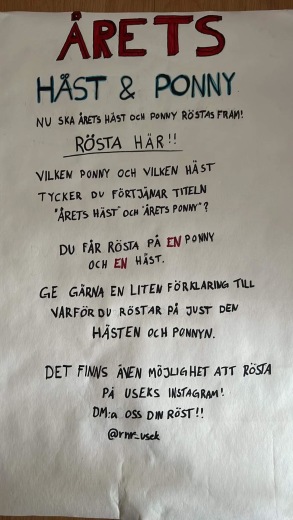 ÅRETS
HÄST & PONNY
NU SKA ÅRETS HÄST OCH PONNY RÖSTAS FRAM!
RÖSTA HÄR!!
VILKEN PONNY OCH VILKEN HÄST
TYCKER DU FÖRTJÄNAR TITELN
"ÅRETS HÄST" OCH "ÅRETS PONNY"?
DU FÅR RÖSTA PÅ EN PONNY
OCH EN HÄST.
GE GÄRNA EN LITEN FÖRKLARING TILL
VARFÖR DU RÖSTAR PÅ JUST DEN
HÄSTEN OCH PONNYN.
DET FINNS ÄVEN MÖJLIGHET ATT RÖSTA
PÅ USEKS INSTAGRAM!
DM:a OSS DIN RÖST!!
@rnr_usek